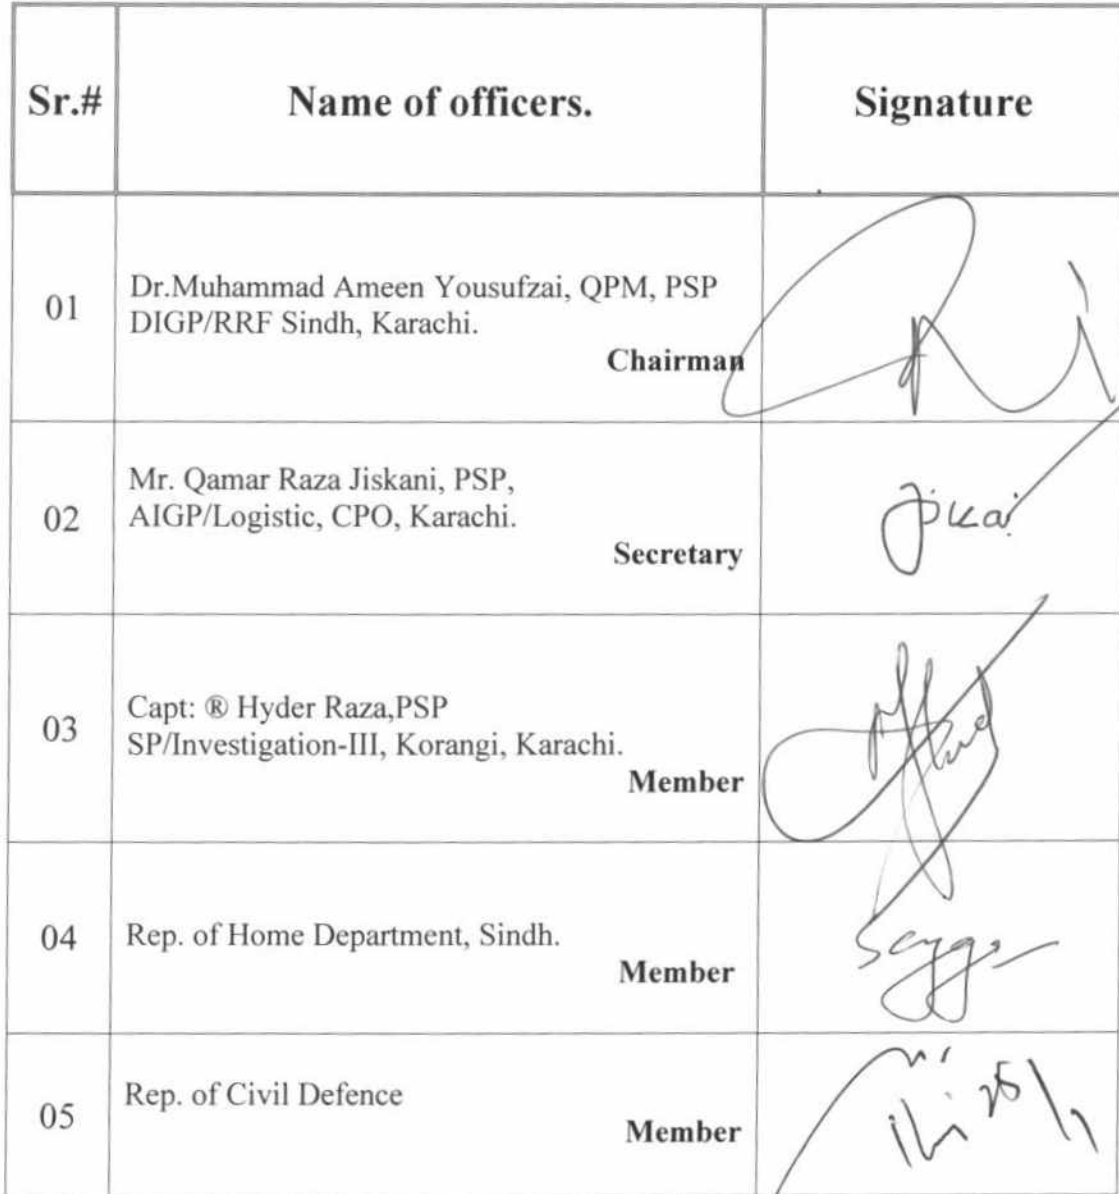 Sr.# Name of officers. Signature
01 Dr.Muhammad Ameen Yousufzai, QPM, PSP
DIGP/RRF Sindh, Karachi.
Chairman
02 Mr. Qamar Raza Jiskani, PSP,
AIGP/Logistic, CPO, Karachi.
Secretary
03 Capt: ® Hyder Raza,PSP
SP/Investigation-III, Korangi, Karachi.
Member
04 Rep. of Home Department, Sindh.
Member
05 Rep. of Civil Defence
Member